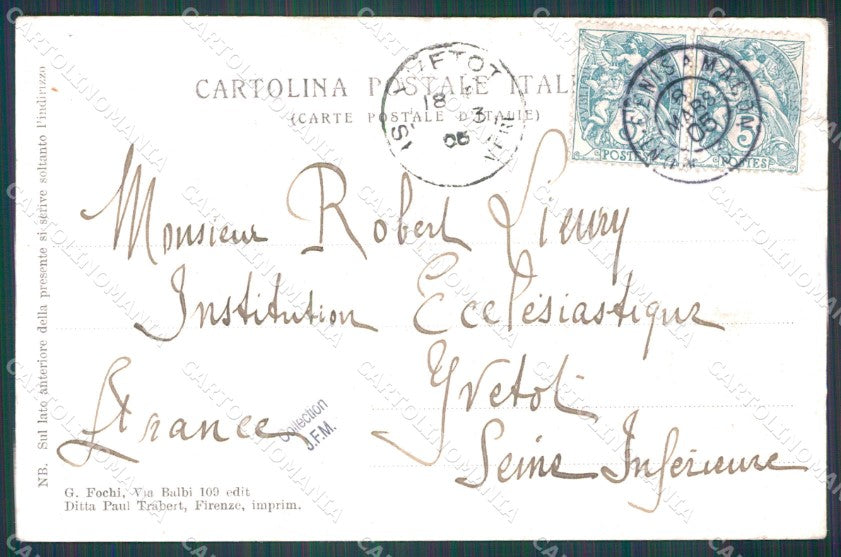 CARTOLINA POSTALE ITAL
(CARTE POSTALE D'ITALIE)
YVETOT
18
3
05
MARS
05
5
POSTES
POSTES
Monsieur Robert Lieury
Institution Ecclésiastique
Yvetot
France
Seine Inférieure
Collection
J.F.M.
NB. Sul lato anteriore della presente si scrive soltanto l'indirizzo
G. Fochi, Via Balbi 109 edit
Ditta Paul Trabert, Firenze, imprim.
CARTOLINOMANIA